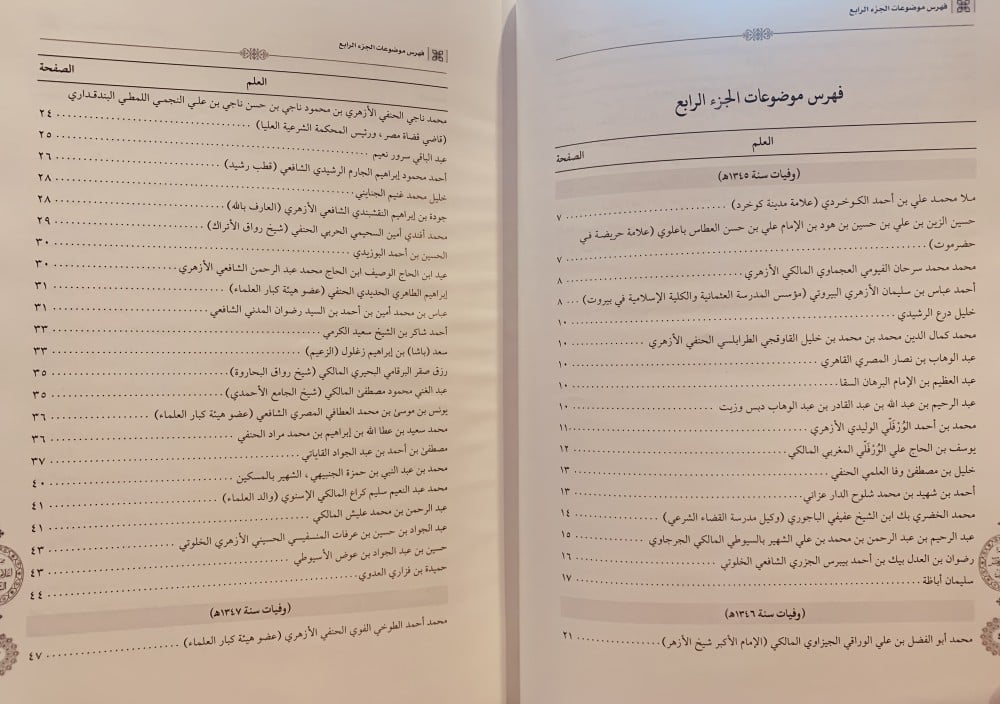 فهرس موضوعات الجزء الرابع
فهرس موضوعات الجزء الرابع
العلم الصفحة
(وفيات سنة ١٣٤٥هـ)
مـلا محمـد علي بن أحمد الكـوخـردي (علامة مدينة كوخرد) ٧
حسين الزين بن علي بن حسين بن هود بن الإمام علي بن حسن العطاس باعلوي (علامة حريضة في
حضرموت) ٧
محمد محمد سرحان الفيومي العجماوي المالكي الأزهري ٨
أحمد عباس بن سليمان الأزهري البيروتي (مؤسس المدرسة العثمانية والكلية الإسلامية في بيروت) ٨
خليل درع الرشيدي ١٠
محمد كمال الدين محمد بن محمد بن خليل القاوقجي الطرابلسي الحنفي الأزهري ١٠
عبد الوهاب بن نصار المصري القاهري ١٠
عبد العظيم بن الإمام البرهان السقا ١٠
عبد الرحيم بن عبد الله بن عبد القادر بن عبد الوهاب دبس وزيت ١٠
محمد بن أحمد الوُرْفَلّي الوليدي الأزهري ١١
يوسف بن الحاج علي الوُرْفَلّي المغربي المالكي ١٢
خليل بن مصطفىٰ وفا العلمي الحنفي ١٣
أحمد بن شهيد بن محمد شلوح الدار عزاني ١٣
محمد الخضري بك ابن الشيخ عفيفي الباجوري (وكيل مدرسة القضاء الشرعي) ١٤
عبد الرحيم بن عبد الرحمن بن محمد بن علي الشهير بالسيوطي المالكي الجرجاوي ١٥
رضوان بن العدل بيك بن أحمد بيبرس الجزري الشافعي الخلوتي ١٦
سليمان أباظة ١٧
(وفيات سنة ١٣٤٦هـ)
محمد أبو الفضل بن علي الوراقي الجيزاوي المالكي (الإمام الأكبر شيخ الأزهر) ٢١
فهرس موضوعات الجزء الرابع
العلم الصفحة
محمد ناجي الحنفي الأزهري بن محمود ناجي بن حسن ناجي بن علـي النجمـي اللمطـي البندقـداري
(قاضي قضاة مصر، ورئيس المحكمة الشرعية العليا) ٢٤
عبد الباقي سرور نعيم ٢٥
أحمد محمود إبراهيم الجارم الرشيدي الشافعي (قطب رشيد) ٢٦
خليل محمد غنيم الجنايني ٢٨
جودة بن إبراهيم النقشبندي الشافعي الأزهري (العارف بالله) ٢٨
محمد أفندي أمين السحيمي الحربي الحنفي (شيخ رواق الأتراك) ٢٩
الحسين بن أحمد البوزيدي ٣٠
عبد ابن الحاج الوصيف ابن الحاج محمد عبد الرحمن الشافعي الأزهري ٣٠
إبراهيم الطاهري الحديدي الحنفي (عضو هيئة كبار العلماء) ٣١
عباس بن محمد أمين بن أحمد بن السيد رضوان المدني الشافعي ٣١
أحمد شاكر بن الشيخ سعيد الكرمي ٣٣
سعد (باشا) بن إبراهيم زغلول (الزعيم) ٣٣
رزق صقر البرقامي البحيري المالكي (شيخ رواق البحاروة) ٣٥
عبد الغني محمود مصطفىٰ المالكي (شيخ الجامع الأحمدي) ٣٥
يونس بن موسىٰ بن محمد العطافي المصري الشافعي (عضو هيئة كبار العلماء) ٣٦
محمد سعيد بن عطا الله بن إبراهيم بن محمد مراد الحنفي ٣٦
مصطفىٰ بن أحمد بن عبد الجواد القاياتي ٣٧
محمد بن عبد النبي بن حمزة الجنبيهي، الشهير بالمسكين ٤٠
محمد عبد النعيم سليم كراع المالكي الإسنوي (والد العلماء) ٤١
عبد الرحمن بن محمد عليش المالكي ٤١
عبد الجواد بن حسين بن عرفات المنسفيسي الحسيني الأزهري الخلوتي ٤٣
حسين بن عبد الجواد بن عوض الأسيوطي ٤٣
حميدة بن فزاري العدوي ٤٤
(وفيات سنة ١٣٤٧هـ)
محمد أحمد الطوخي الفوي الحنفي الأزهري (عضو هيئة كبار العلماء) ٤٧